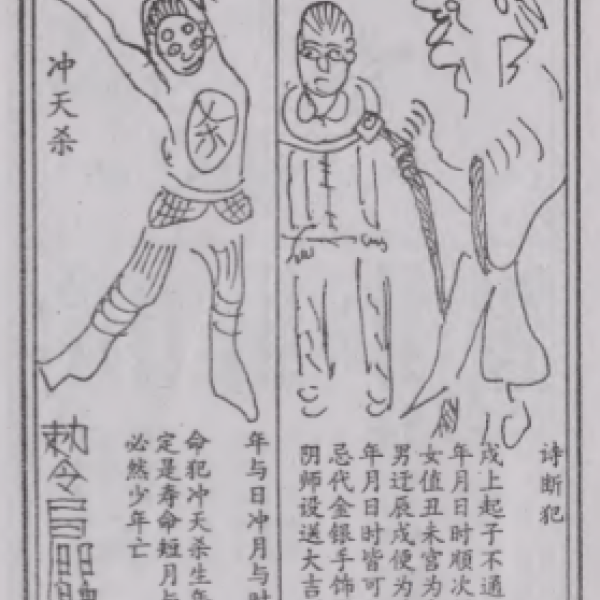 诗断犯
戌上起子不通
年月日时顺次
女值丑未宫为
男迁辰戌便为
年月日时皆可
忌代金银手饰
阴师设送大吉
冲天杀
杀
年与日冲月与时
命犯冲天杀生年
定是寿命短月与
必然少年亡
勅令